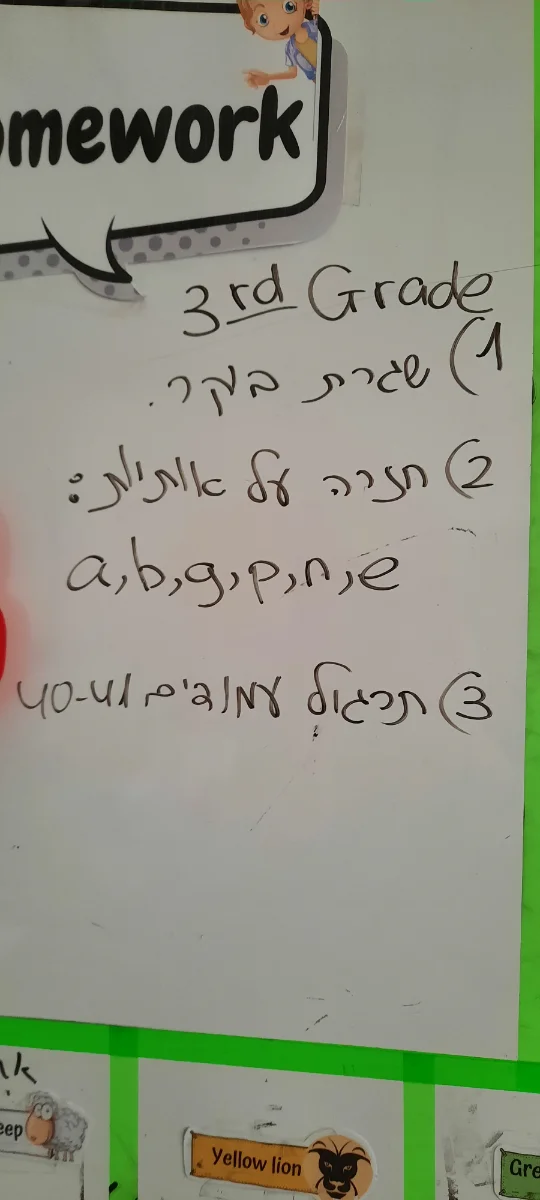 omework
3rd Grade
1) שגרת בוקר.
2) חזרה על אותיות:
a,b,g,p,n,e
3) תרגול עמודים 40-41
eep
Yellow lion
Gre